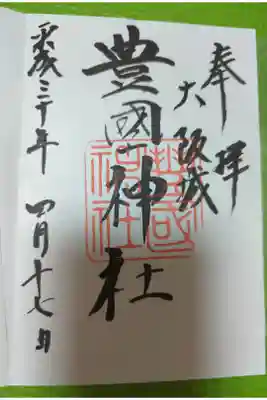 奉拝
大阪城
豊國神社
平成三十年 四月十七日